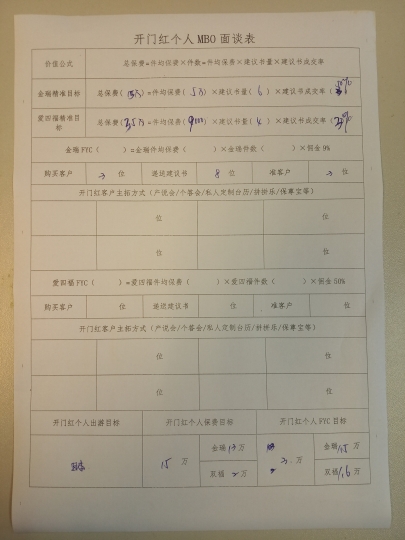 开门红个人 MBO 面谈表
价值公式 总保费=件均保费×件数=件均保费×建议书量×建议书成交率
金瑞精准目标 总保费( 万)=件均保费( 5万 )×建议书量( 6 )×建议书成交率( %
爱四福精准目标 总保费(3.5万)=件均保费( 9000 )×建议书量( 4 )×建议书成交率( %
金瑞 FYC( )=金瑞件均保费( )×金瑞件数( )×佣金 9%
购买客户 3 位 递送建议书 8 位 准客户 3 位
开门红客户主拓方式(产说会/个客会/私人定制台历/拼拼乐/保尊宝等)
位 位
位 位
爱四福 FYC( )=爱四福件均保费( )×爱四福件数( )×佣金 50%
购买客户 位 递送建议书 位 准客户 位
开门红客户主拓方式(产说会/个客会/私人定制台历/拼拼乐/保尊宝等)
位 位
位 位
开门红个人出游目标 开门红个人保费目标 开门红个人 FYC 目标
15 万 金瑞 13 万 3. 万 金瑞 万
双福 2 万 双福 1.6 万